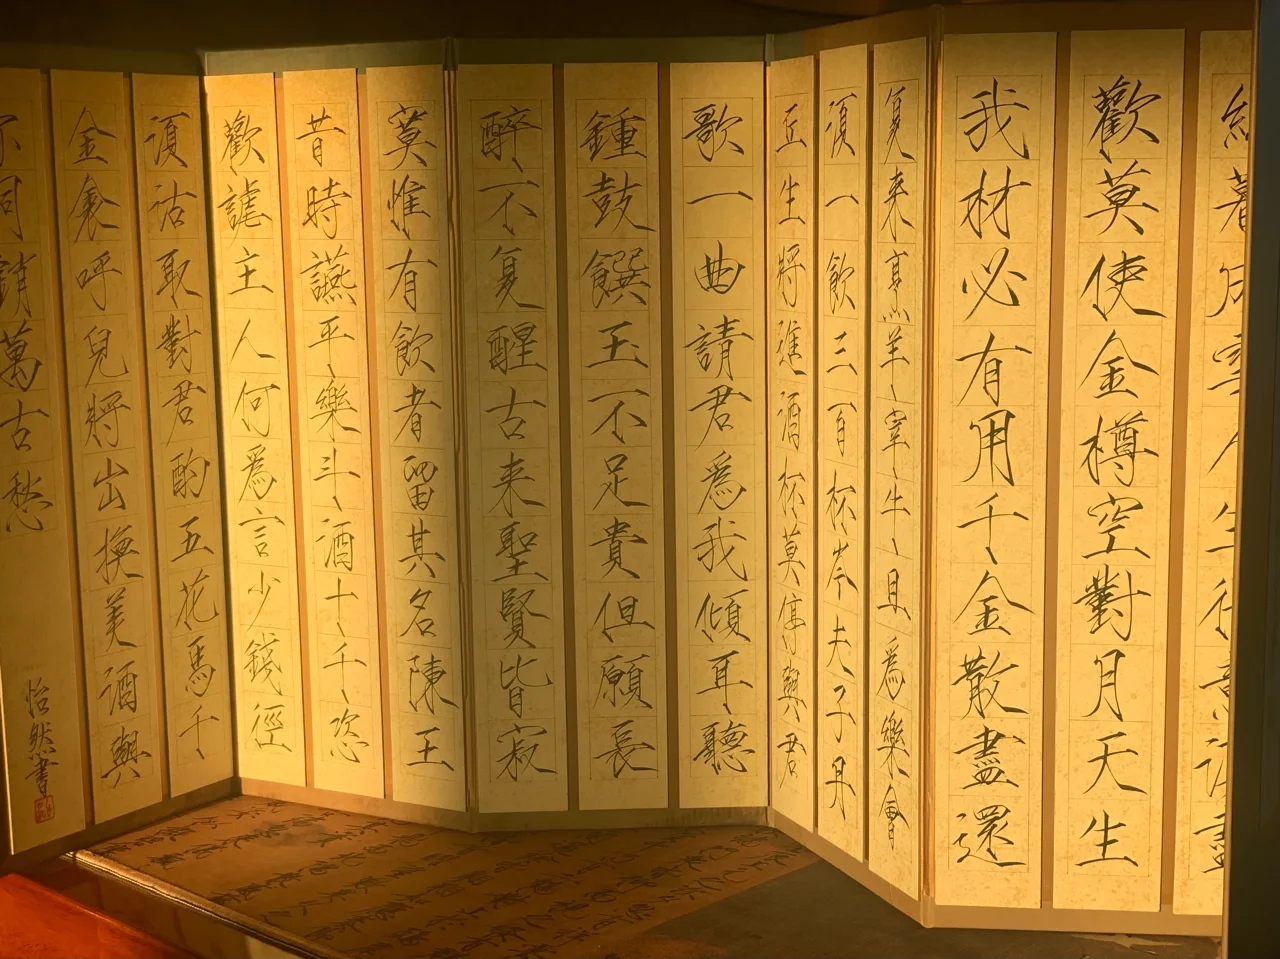 暮成雪人生得意須盡
歡莫使金樽空對月天生
我材必有用千金散盡還
复来烹羊宰牛且爲樂會
須一飲三百杯岑夫子丹
丘生將進酒杯莫停與君
歌一曲請君爲我傾耳聽
鍾鼓饌玉不足貴但願長
醉不复醒古来聖賢皆寂
莫惟有飲者留其名陳王
昔時讌平樂斗酒十千恣
歡謔主人何爲言少錢徑
須沽取對君酌五花馬千
金裘呼兒將出換美酒與
尔同銷萬古愁
怡然書